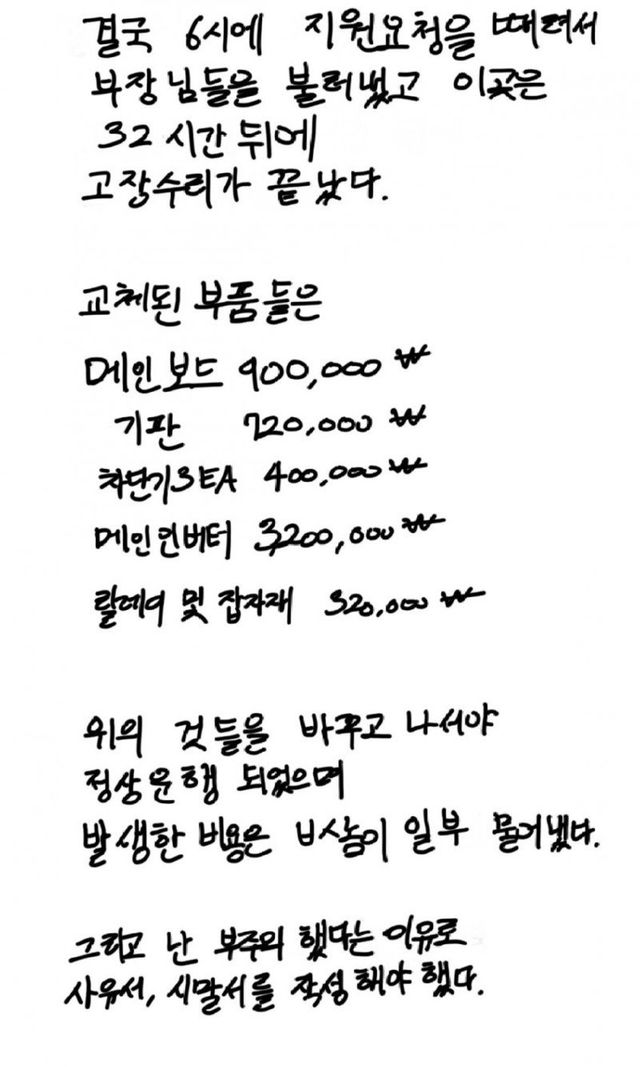 결국 6시에 지원요청을 때려서
부장님들을 불러냈고 이곳은
32시간 뒤에
고장수리가 끝났다.
교체된 부품들은
메인보드 900,000₩
기판 720,000₩
차단기3EA 400,000₩
메인인버터 3,200,000₩
릴레이 및 잡자재 320,000₩
위의 것들을 바꾸고 나서야
정상운행 되었으며
발생한 비용은 ㅂㅅ놈이 일부 물어냈다.
그리고 난 부주의 했다는 이유로
사유서, 시말서를 작성해야 했다.